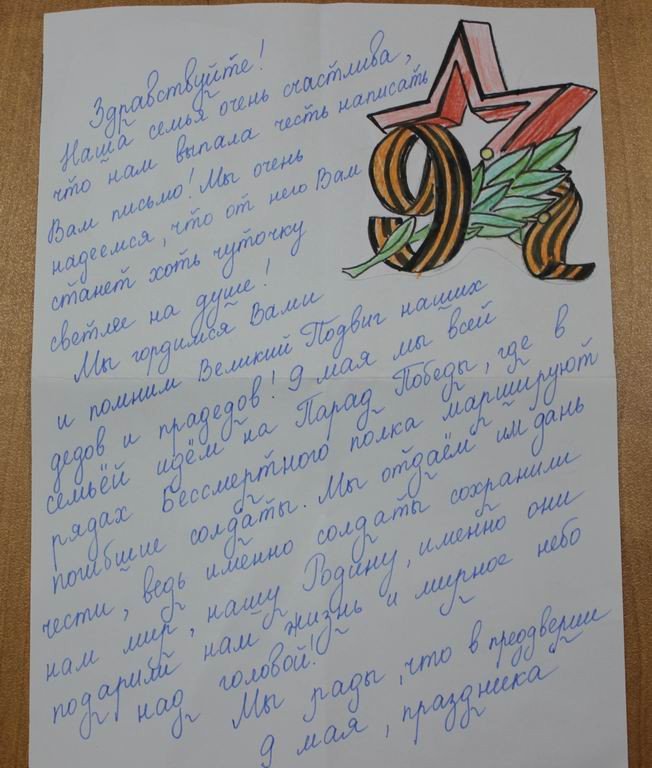 Здравствуйте!
Наша семья очень счастлива,
что нам выпала честь написать
Вам письмо! Мы очень
надеемся, что от него Вам
станет хоть чуточку
светлее на душе!
Мы гордимся Вами
и помним Великий Подвиг наших
дедов и прадедов! 9 мая мы всей
семьёй идём на Парад Победы, где в
рядах Бессмертного полка маршируют
погибшие солдаты. Мы отдаём им дань
чести, ведь именно солдаты сохранили
нам мир, нашу Родину, именно они
подарили нам жизнь и мирное небо
над головой!
Мы рады, что в преодверии
9 мая, праздника
9